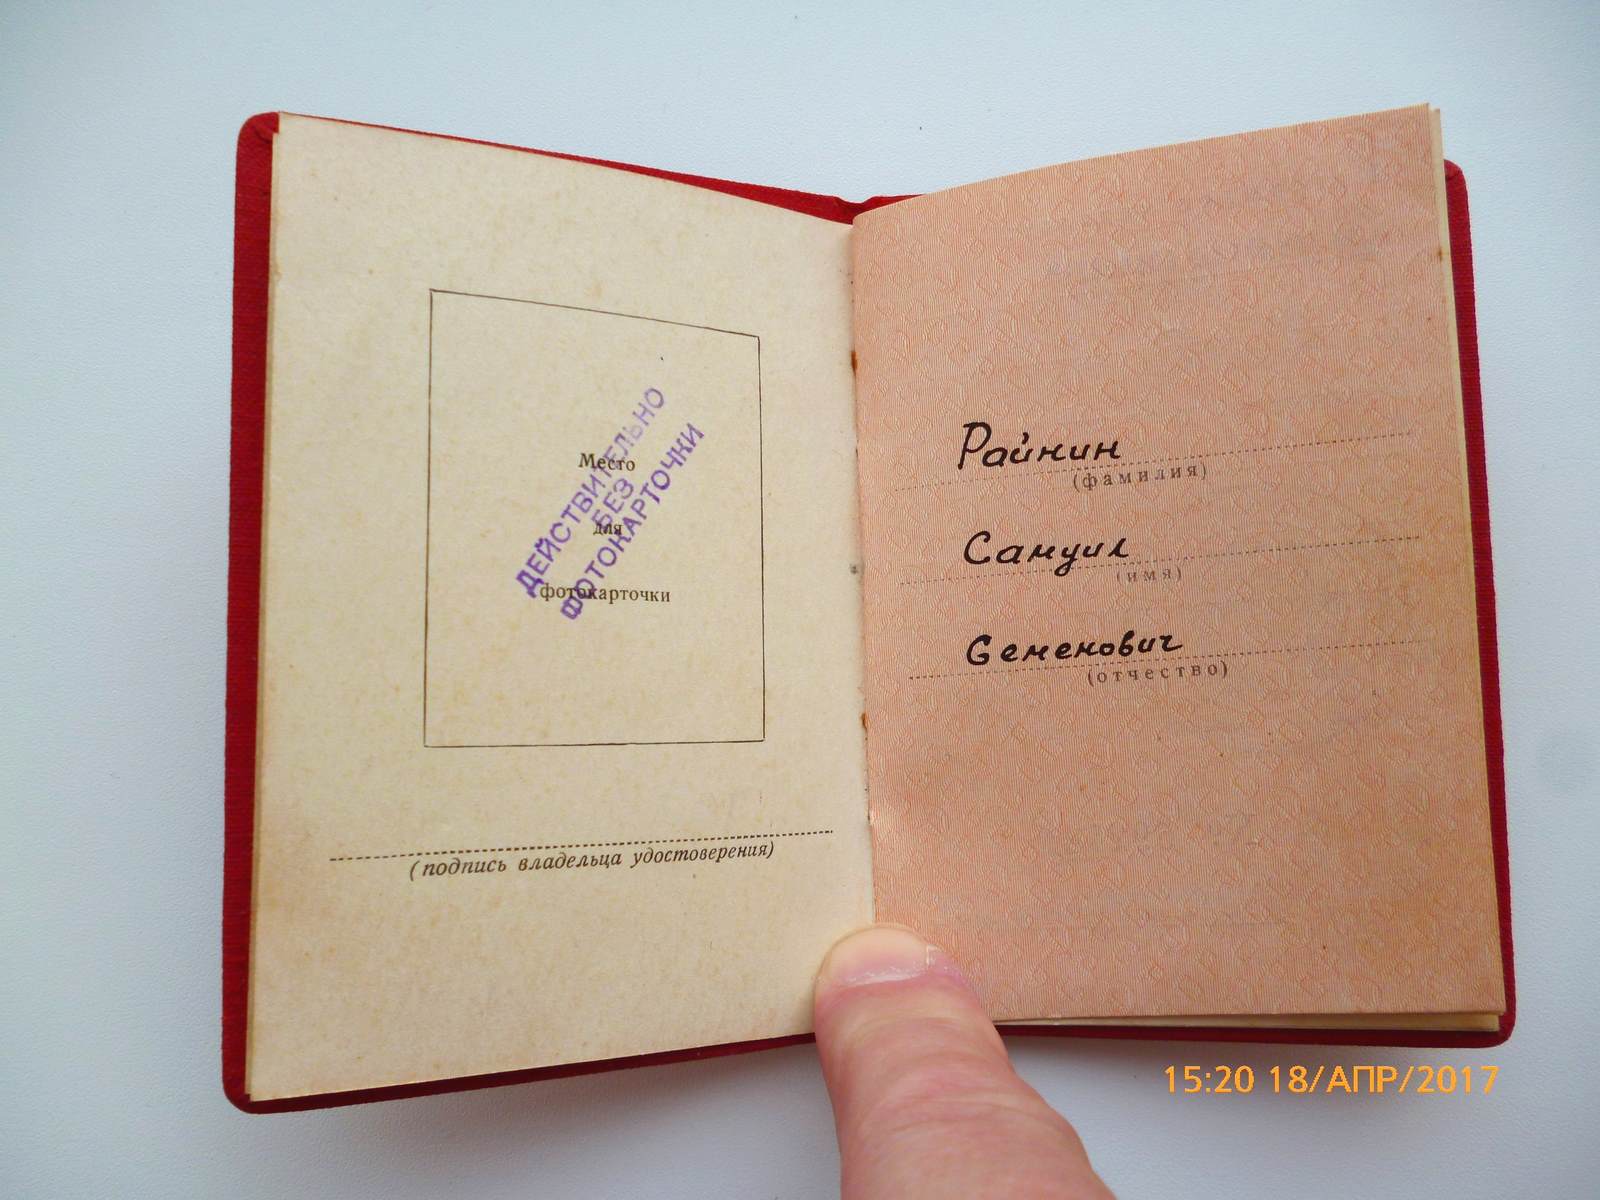 Место
для
фотокарточки
ДЕЙСТВИТЕЛЬНО
БЕЗ
ФОТОКАРТОЧКИ
(подпись владельца удостоверения)
Райнин
(фамилия)
Самуил
(имя)
Семенович
(отчество)
15:20 18/АПР/2017